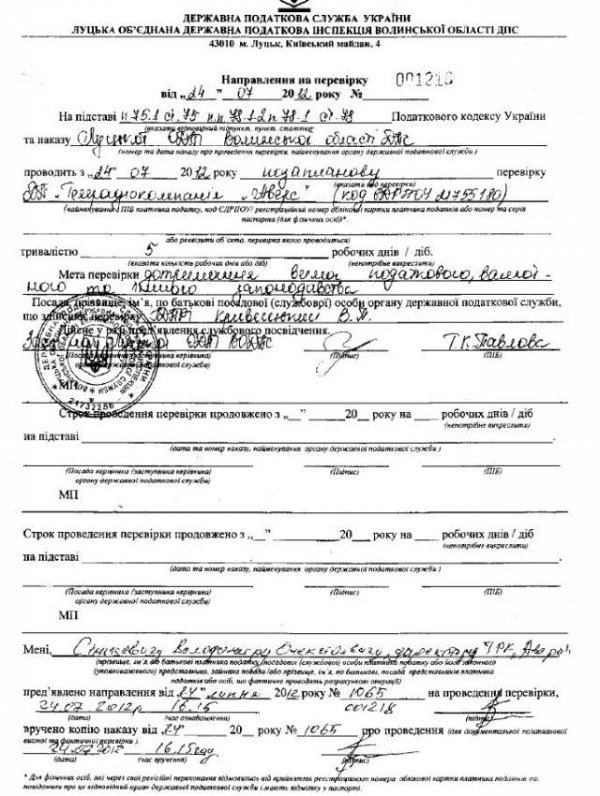 ДЕРЖАВНА ПОДАТКОВА СЛУЖБА УКРАЇНИ
ЛУЦЬКА ОБ'ЄДНАНА ДЕРЖАВНА ПОДАТКОВА ІНСПЕКЦІЯ ВОЛИНСЬКОЇ ОБЛАСТІ ДПС
43010 м. Луцьк, Київський майдан, 4
Направлення на перевірку
від „24" 07 2012 року № 001218
На підставі п 75.1 ст. 75 п.п. 78.1.2 п. 78.1 ст. 78 Податкового кодексу України
(вказати відповідний підпункт, пункт, статтю)
та наказу Луцької ОДПІ Волинської області ДПС
(номер та дата наказу про проведення перевірки, найменування органу державної податкової служби)
проводить з „24" 07 2012 року позапланову перевірку
(вказати вид перевірки)
"Телерадіокомпанія "Аверс" (код ЄДРПОУ 21755180)
(найменування/ ПІБ платника податку, код ЄДРПОУ/ реєстраційний номер облікової картки платника податків або номер та серія
паспорта (для фізичних осіб)*.
або реквізити об'єкта, перевірка якого проводиться)
тривалістю 5 робочих днів / діб.
(вказати кількість робочих днів або діб) (непотрібне викреслити)
Мета перевірки дотримання вимог податкового, валют-
ного та іншого законодавства
Посада, прізвище, ім'я, по батькові посадової (службової) особи органу державної податкової служби,
що здійснює перевірку В.П.
Дійсне у разі пред'явлення службового посвідчення.
ОДПІ Т.К. Павлова
(Підпис) (ПІБ)
МП
24732286
Строк проведення перевірки продовжено з „__" 20__ року на ___ робочих днів / діб
(непотрібне викреслити)
на підставі
(дата та номер наказу, найменування органу державної податкової служби)
(Посада керівника (заступника керівника) (Підпис) (ПІБ)
органу державної податкової служби)
МП
Строк проведення перевірки продовжено з „__" 20__ року на ___ робочих днів / діб
(непотрібне викреслити)
на підставі
(дата та номер наказу, найменування органу державної податкової служби)
(Посада керівника (заступника керівника) (Підпис) (ПІБ)
органу державної податкової служби)
МП
Мені, Володимиру Олексійовичу, директору ТРК "Аверс"
(прізвище, ім'я, по батькові платника податку/посадової (службової) особи платника податку або його законного
(уповноваженого) представника, зазначити посаду/ або прізвище, ім'я, по батькові, посада представників платника
податків або осіб, що фактично проводять розрахункові операції)
пред'явлено направлення від „24" липня 2012 року № 1065 на проведення перевірки,
24.07.2012р 16.15 001218
(дата) (час ознайомлення) (підпис)
вручено копію наказу від „24" 20__ року № 1065 про проведення (для документальної позапланової
виїзної та фактичної перевірки)
24.07.2012 16.15 году
(дата) (час вручення) (підпис)
* Для фізичних осіб, які через свої релігійні переконання відмовились від прийняття реєстраційного номера облікової картки платника податків та
повідомили про це відповідний орган державної податкової служби і мають відмітку у паспорті.